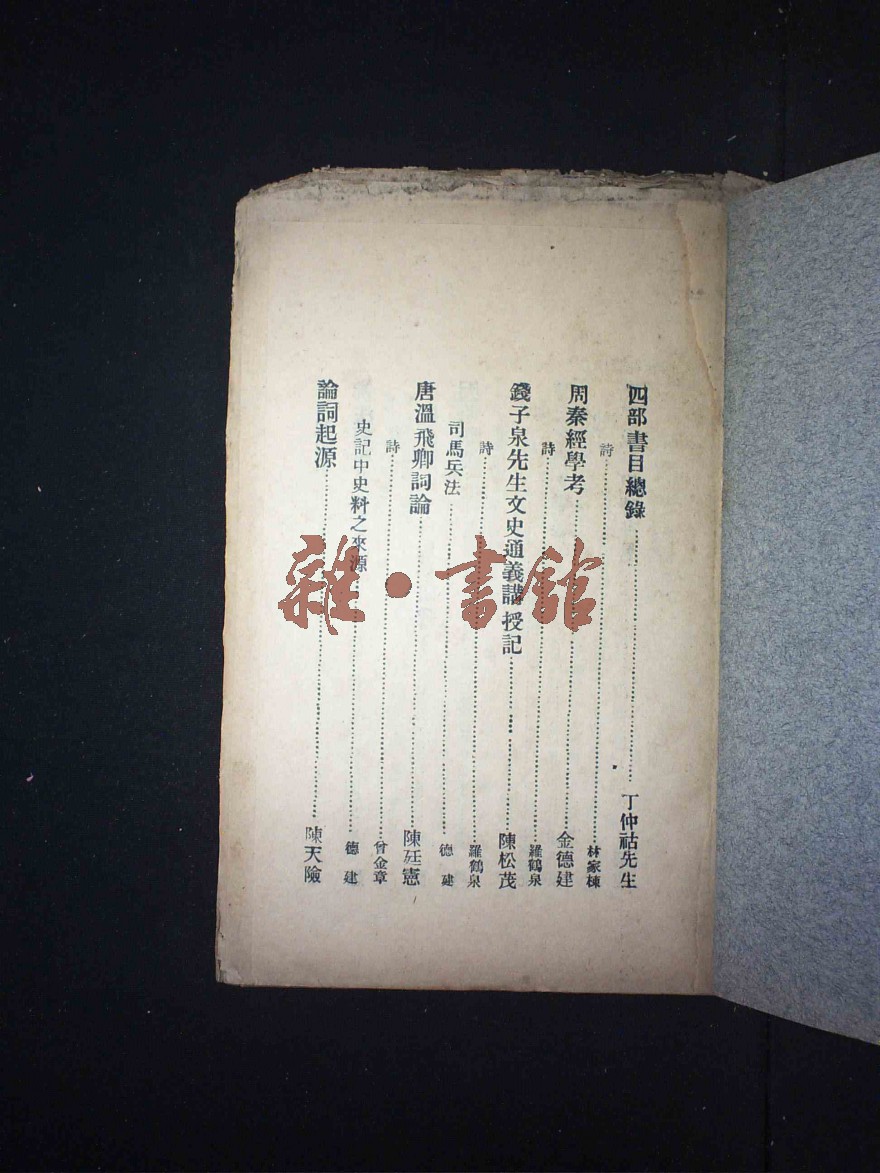 四部書目總錄……丁仲祜先生
詩……林家棟
周秦經學考……金德建
詩……羅鶴泉
錢子泉先生文史通義講授記……陳松茂
詩……羅鶴泉
司馬兵法……德建
唐溫飛卿詞論……陳廷憲
詩……曾金章
史記中史料之來源……德建
論詞起源……陳天險
雜·書館